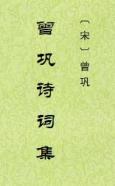 〔宋〕曾巩
曾巩诗词集